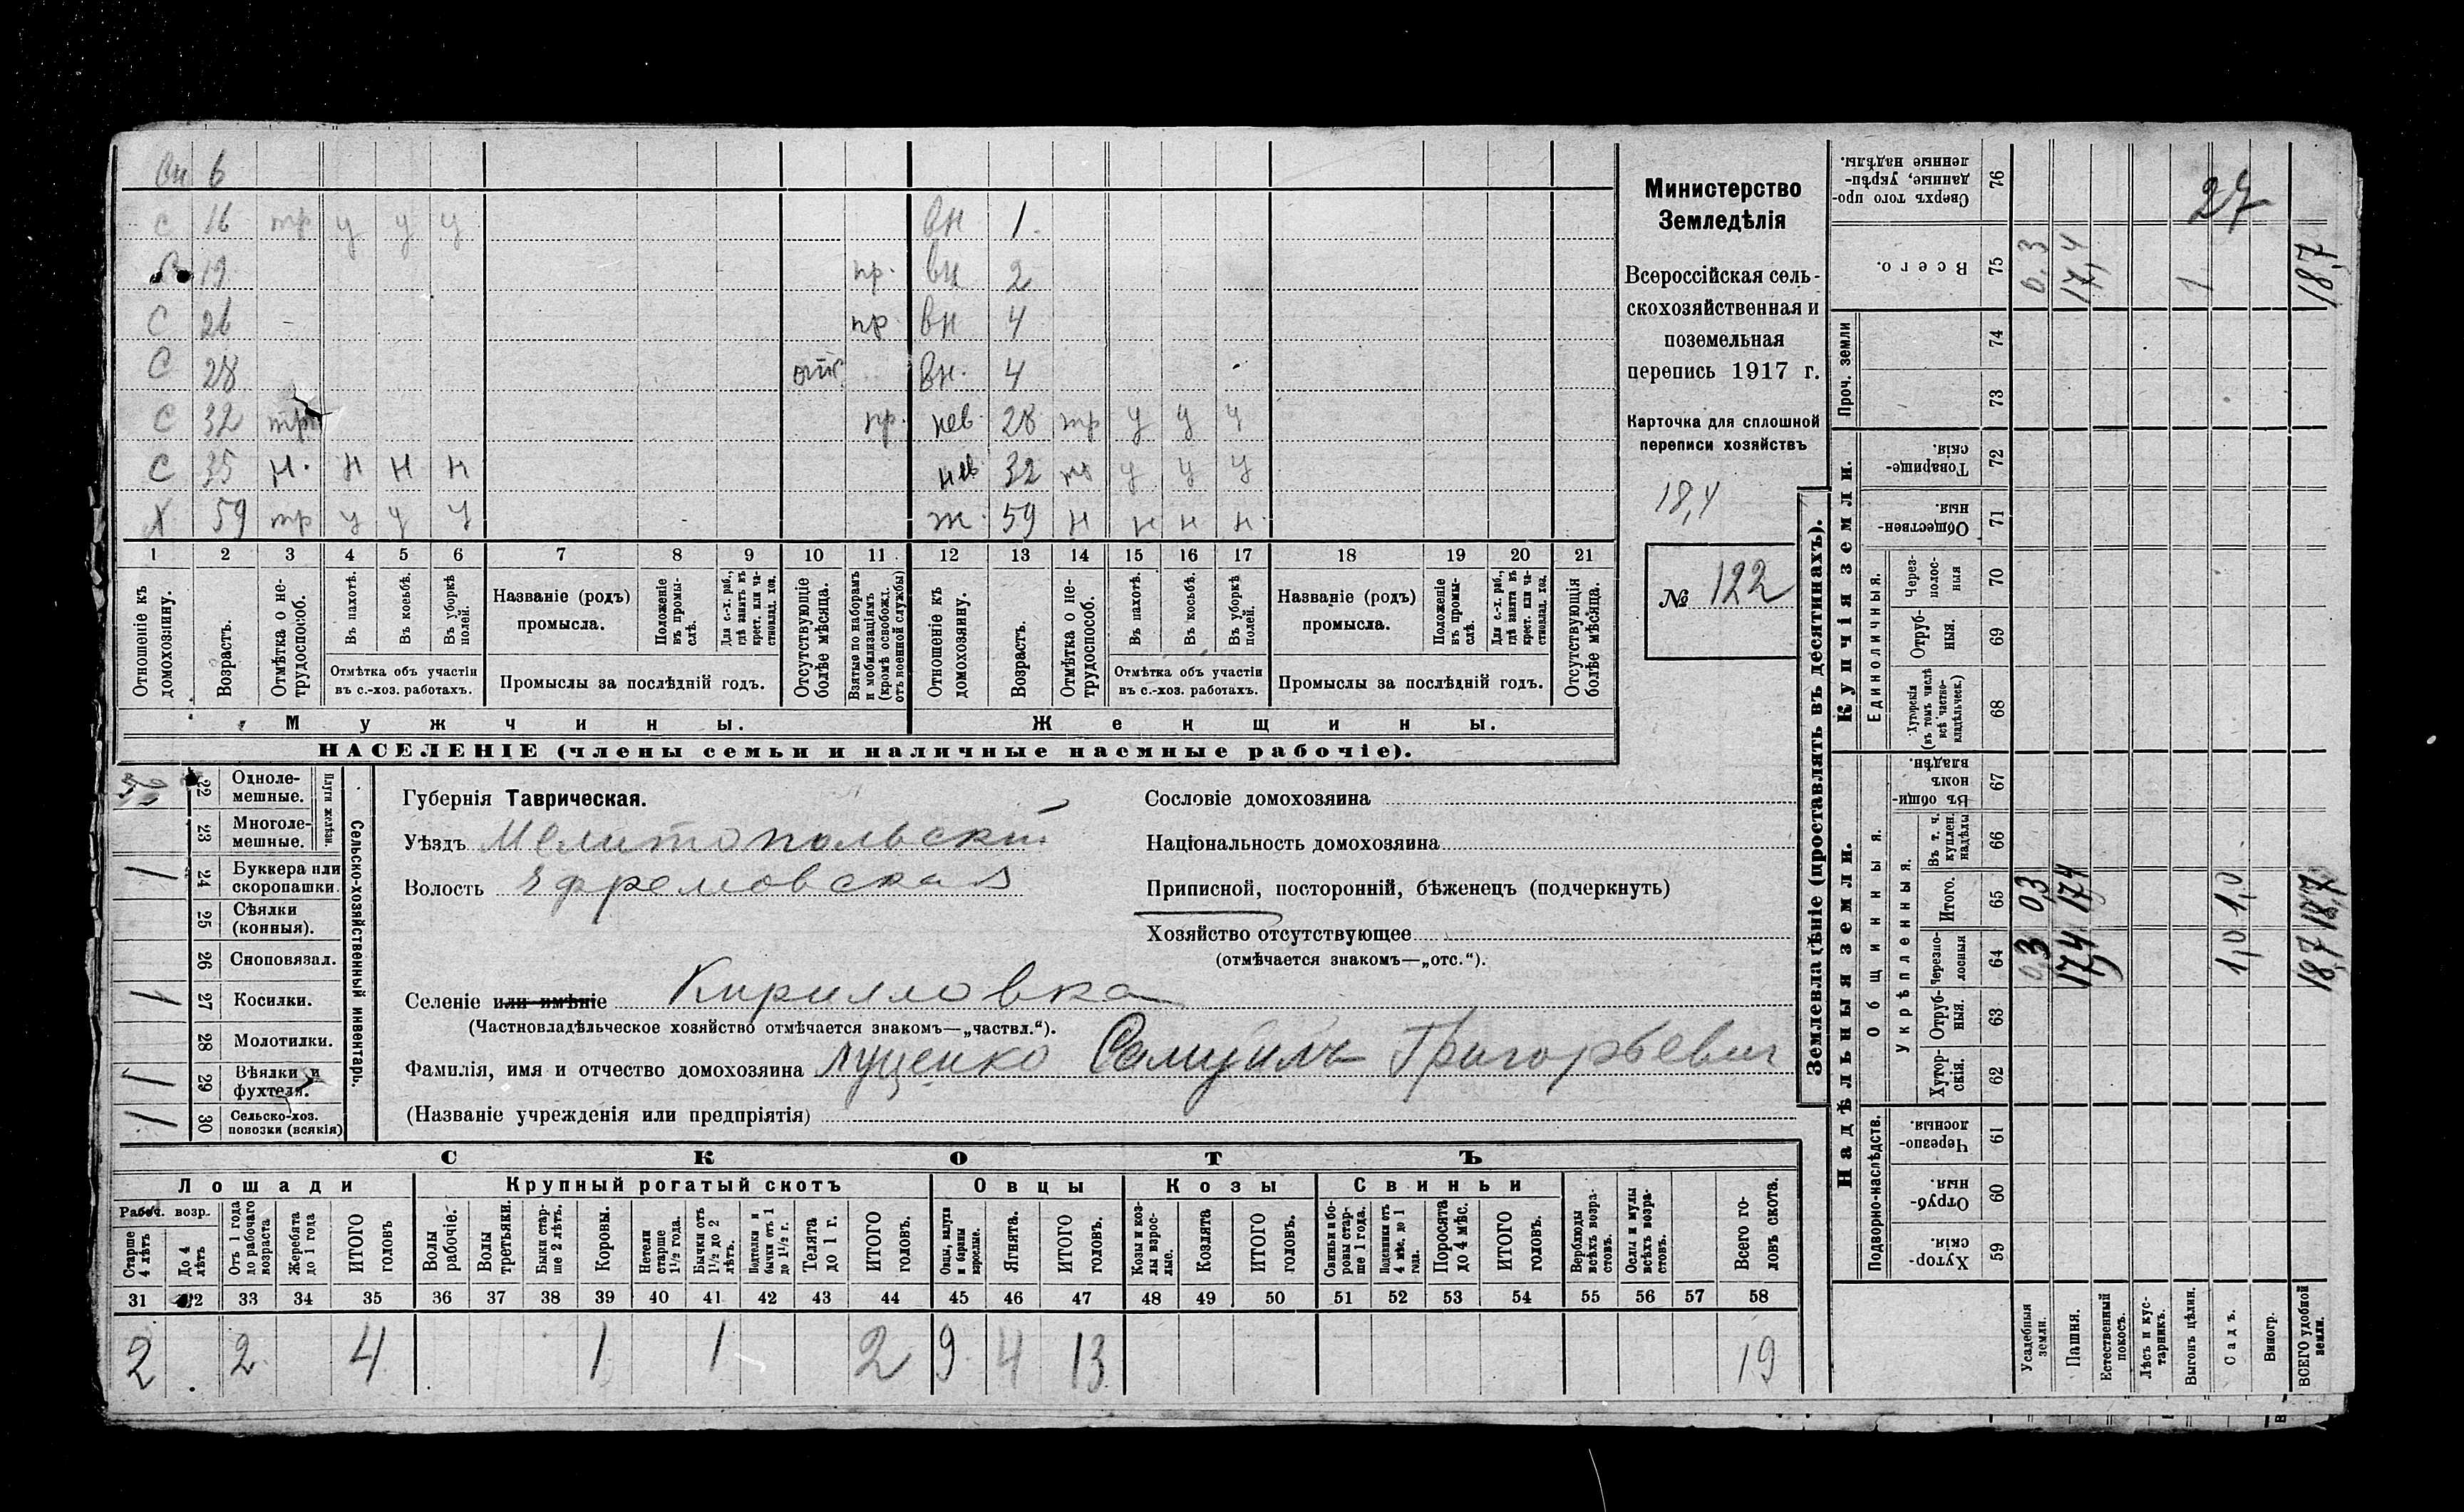 вн 6
с 16 тр у у у вн 1
19 пр. вн 2
С 26 - пр. вн 4
С 28 отс. вн. 4
С 32 тр пр. нев. 28 тр у у у
С 35 н. н н н нев 32 у у у
Х 59 тр у у у ж. 59 н н н н.
1 2 3 4 5 6 7 8 9 10 11 12 13 14 15 16 17 18 19 20 21
Отношеніе къ домохозяину.
Возрастъ.
Отмѣтка о не-трудоспособ.
Въ пахотѣ.
Въ косьбѣ.
Въ уборкѣ полей.
Отмѣтка объ участіи въ с.-хоз. работахъ.
Названіе (родъ) промысла.
Положеніе въ промы-слѣ.
Для с.-х. раб., гдѣ занятъ въ крест. или ча-стновлад. хоз.
Промыслы за послѣдній годъ.
Отсутствующіе болѣе мѣсяца.
Взятые по наборамъ и мобилизаціямъ (кромѣ освобожд. отъ военной службы)
Отношеніе къ домохозяину.
Возрастъ.
Отмѣтка о не-трудоспособ.
Въ пахотѣ.
Въ косьбѣ.
Въ уборкѣ полей.
Отмѣтка объ участіи въ с.-хоз. работахъ.
Названіе (родъ) промысла.
Положеніе въ промы-слѣ.
Для с.-х. раб., гдѣ занята въ крест. или ча-стновлад. хоз.
Промыслы за послѣдній годъ.
Отсутствующія болѣе мѣсяца.
Мужчины.
Женщины.
НАСЕЛЕНІЕ (члены семьи и наличные наемные рабочіе).
Министерство
Земледѣлія
Всероссійская сель-
скохозяйственная и
поземельная
перепись 1917 г.
Карточка для сплошной
переписи хозяйствъ
18,4
№ 122
22 Одноле-мешные.
23 Многоле-мешные.
Плуги желѣзн.
24 Буккера или скоропашки. 1
25 Сѣялки (конныя).
26 Сноповязал.
27 Косилки. 1
28 Молотилки.
29 Вѣялки и фухтеля. 1
30 Сельско-хоз. повозки (всякія) 1
Сельско-хозяйственный инвентарь.
Губернія Таврическая.
Уѣздъ Мелитопольскій
Волость Ефремовская
Сословіе домохозяина
Національность домохозяина
Приписной, посторонній, бѣженецъ (подчеркнуть)
Хозяйство отсутствующее
(отмѣчается знакомъ—„отс.“).
Селеніе или имѣніе Кирилловка
(Частновладѣльческое хозяйство отмѣчается знакомъ—„частвл.“).
Фамилія, имя и отчество домохозяина Луценко Самуилъ Григорьевич
(Названіе учрежденія или предпріятія)
СКОТЪ
Лошади
Крупный рогатый скотъ
Овцы
Козы
Свиньи
Рабоч. возр.
Старше 4 лѣтъ
До 4 лѣтъ
Отъ 1 года до рабочаго возраста
Жеребята до 1 года
ИТОГО головъ
Волы рабочіе.
Волы третьяки.
Быки стар-ше 2 лѣтъ.
Коровы.
Нетели старше 1½ года.
Бычки отъ 1½ до 2 лѣтъ.
Подтелки и бычки отъ 1 до 1½ г.
Телята до 1 г.
ИТОГО головъ.
Овцы, валухи и бараны взрослые.
Ягнята.
ИТОГО головъ.
Козы и коз-лы взрос-лые.
Козлята
ИТОГО головъ.
Свиньи и бо-ровы стар-ше 1 года.
Подсвинки отъ 4 мѣс. до 1 года.
Поросята до 4 мѣс.
ИТОГО головъ.
Верблюды всѣхъ возра-стовъ.
Ослы и мулы всѣхъ возра-стовъ.
Всего го-ловъ скота.
31 32 33 34 35 36 37 38 39 40 41 42 43 44 45 46 47 48 49 50 51 52 53 54 55 56 57 58
2 2 4 1 1 2 9 4 13 19
Землевладѣніе (проставлять въ десятинахъ).
Купчія земли.
Надѣльныя земли.
Сверхъ того про-данные, укрѣп-ленные надѣлы. 76 27
Всего. 75 0,3 17,4 1 18,7
Проч. земли
74
73
Товарище-скія. 72
Обществен-ныя. 71
Единоличныя.
Через-полос-ныя 70
Отруб-ныя. 69
Хуторскія (въ томъ числѣ всѣ частно-владѣльческ.) 68
Общинныя.
Въ общи-номъ владѣн. 67
Укрѣпленныя.
Въ т. ч. куплен. надѣлы 66
Итого. 65 0,3 17,4 1,0 18,7
Черезпо-лосныя 64 0,3 17,4 1,0 18,7
Отруб-ныя. 63
Хутор-скія. 62
Подворно-наслѣдств.
Черезпо-лосныя. 61
Отруб-ныя. 60
Хутор-скія. 59
Усадебныя земли.
Пашня.
Естественный покосъ.
Лѣсъ и кус-тарникъ.
Выгонъ цѣлин.
Садъ.
Виногр.
ВСЕГО удобной земли.